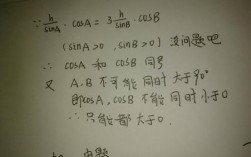 ∵ h/sinA · cosA = 3 h/sinB · cosB
(sinA>0, sinB>0) 没问题吧
∴ cosA 和 cosB 同号
又 A、B 不可能同时大于90°
即cosA, cosB 不能同时小于0
∴ 只能都大于0.